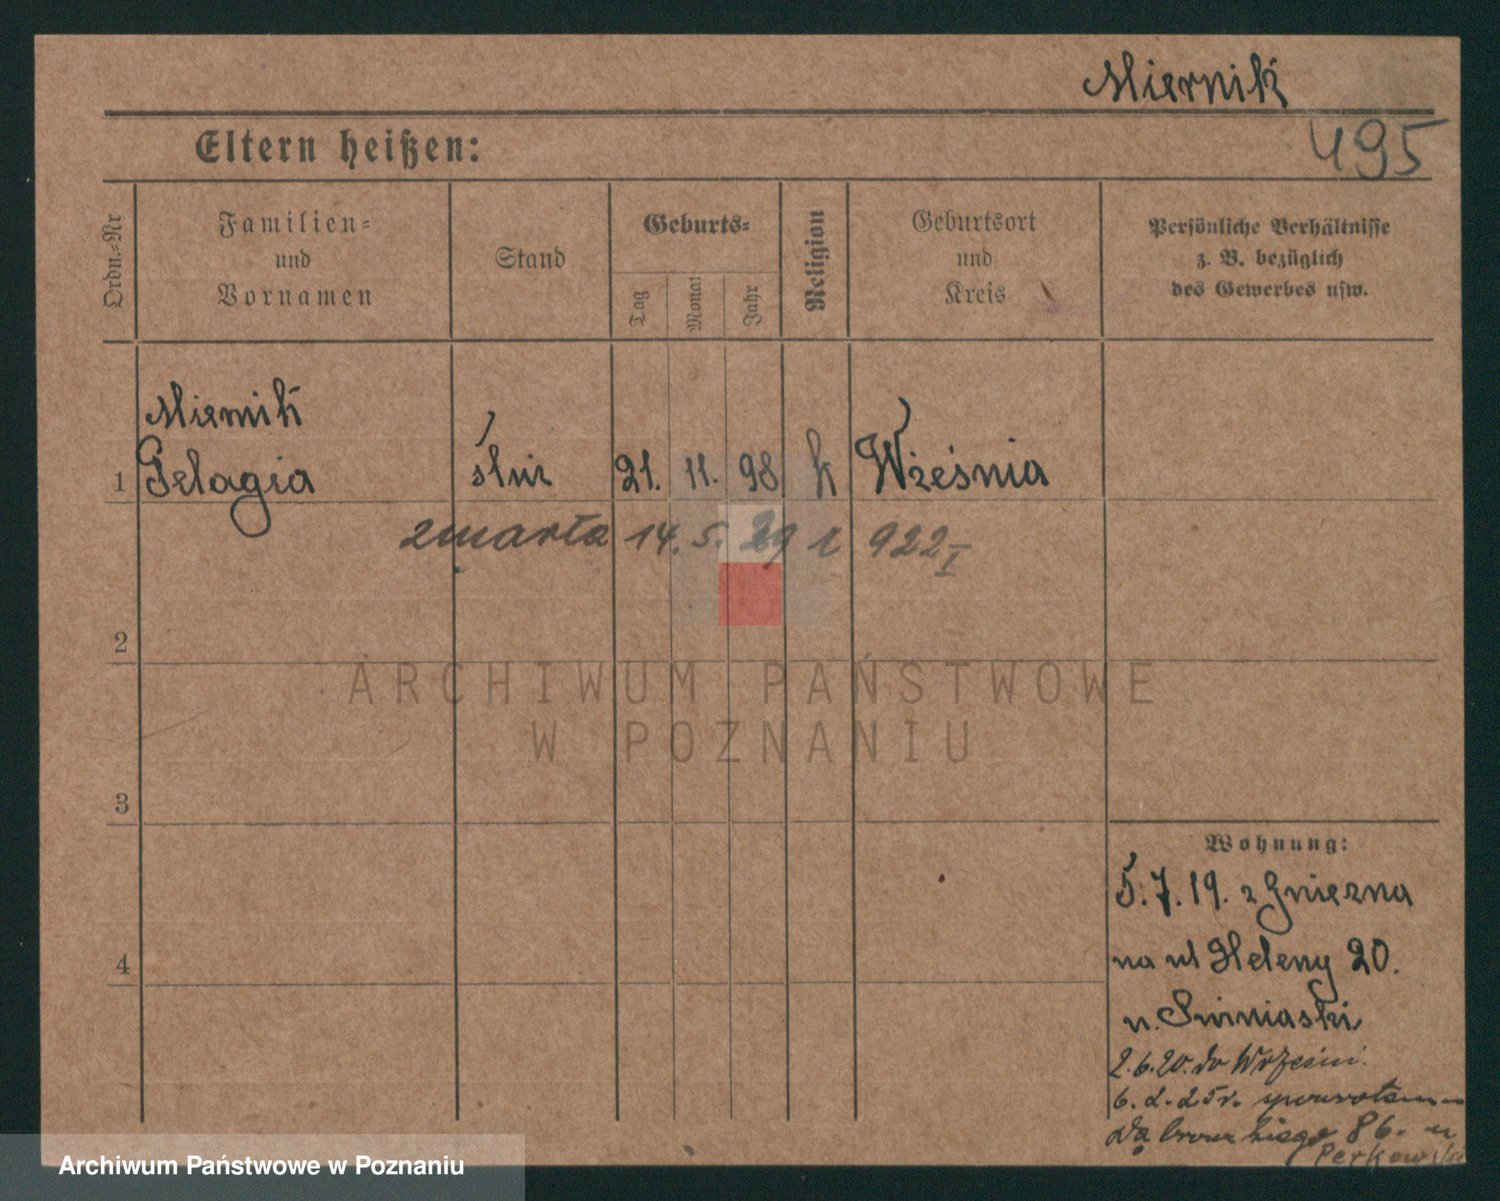 Miernik
495
Eltern heißen:
Ordn.-Nr
Familien-
und
Vornamen
Stand
Geburts-
Tag
Monat
Jahr
Religion
Geburtsort
und
Kreis
Persönliche Verhältnisse
z. B. bezüglich
des Gewerbes usw.
Miernik
1 Pelagia służ 21. 11. 98 k Września
zmarła 14. 5. 29 r 922 I
2
3
4
Wohnung:
5.7.19. z Gniezna
na ul Heleny 20.
u. Swiniarski
2.6.20. do Wrześni.
6.2.25r. spowrotem
Dąbrowskiego 86. u
Perkowska
ARCHIWUM PAŃSTWOWE
W POZNANIU
Archiwum Państwowe w Poznaniu